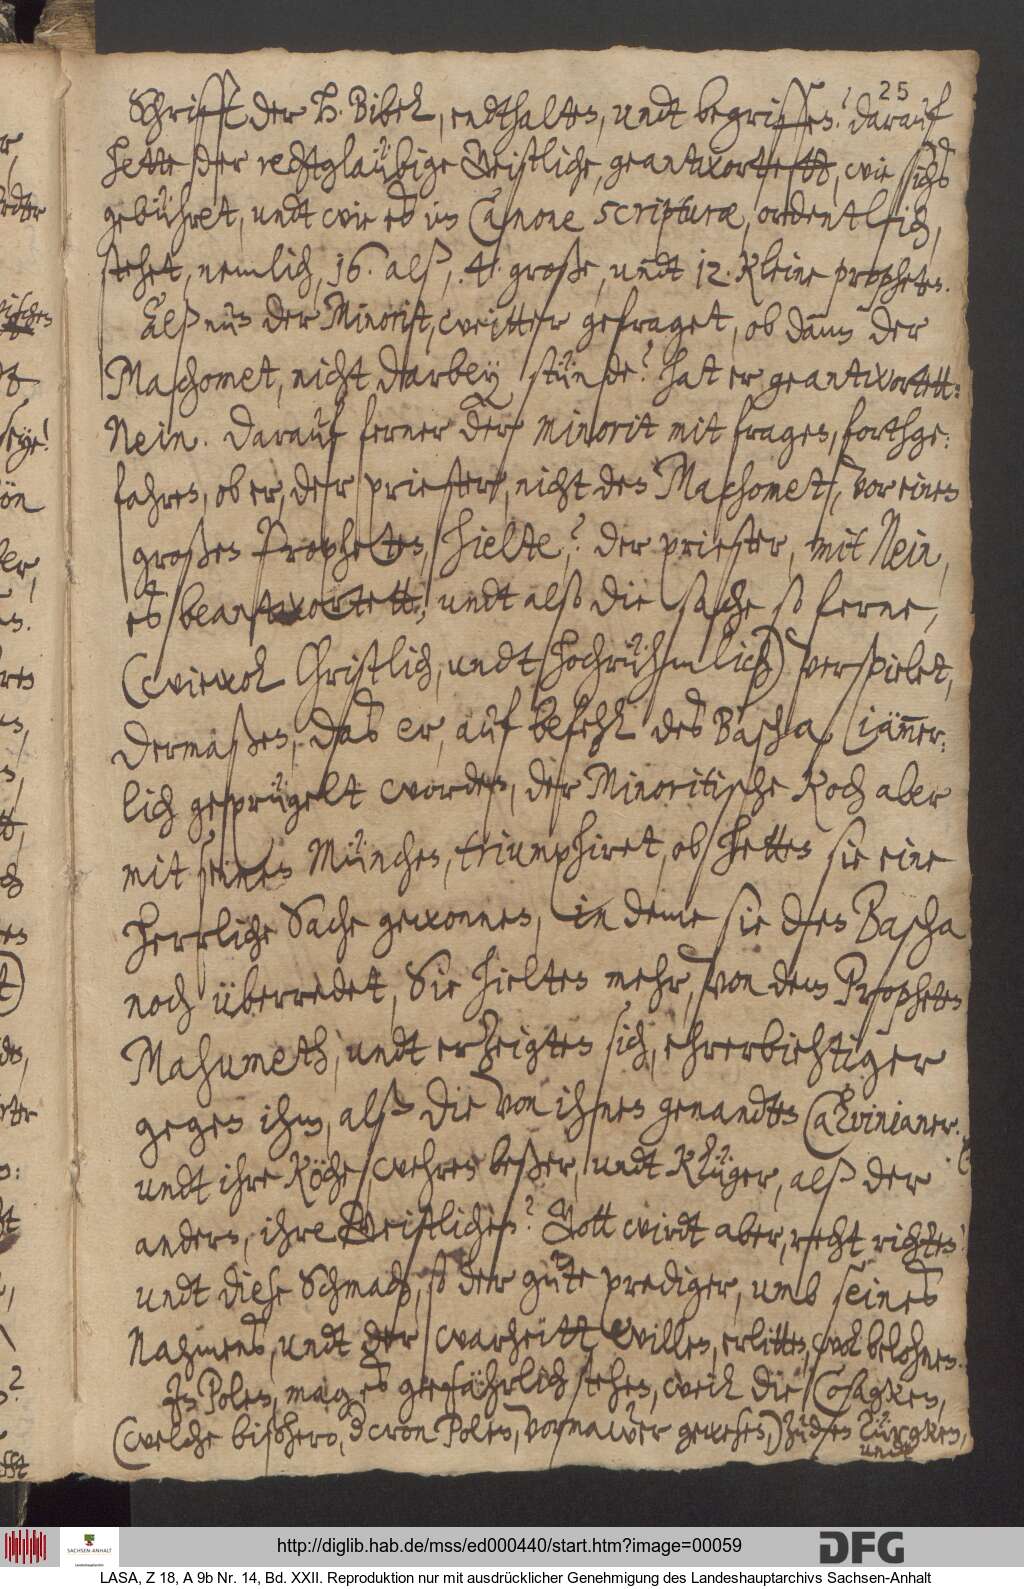 25
Schrifft der H. Bibel, endthalten, undt begriffen? darauf
hette der rechtglaübige Geistliche, geantwortett, wie sichs
gebühret, undt wie es im Canone scripturæ, ordentlich,
stehet, nemlich, 16. alß, 4. große, undt 12. Kleine propheten.
Alß nun der Minorit, weitter gefraget, ob dann der
Machomet, nicht darbey stünde? hat er geantwortett:
Nein. Darauf ferner der Minorit mit fragen, forthge:
fahren, ob er, der priester, nicht den Machomet, vor einen
großen Propheten, hielte? der priester, mit Nein,
es beantwortett, undt also die sache so ferne,
(wiewol Christlich, undt hochrühmlich) verspielet,
dermaßen, das er, auf befehl des Bascha, jämmer:
lich geprügelt worden, der Minoritische Koch aber
mit seinen München, triumphiret, ob hetten sie eine
herrliche Sache gewonnen, in deme sie den Bascha
noch überredet, Sie hielten mehr, von dem Propheten
Mahumeth, undt erzeigten sich, ehrerbiehtiger
gegen ihm, alß die von ihnen genandten Calvinianer.
undt ihre Köche wehren beßer, undt Klüger, alß der
andern, ihre Geistlichen? Gott wirdt aber, recht richten
undt diese Schmach, so der gute prediger, umb seines
Nahmens, undt der warheitt willen, erlitten, wol belohnen.
In Polen, mag es gefährlich stehen, weil die Cosagken,
(welche bißhero, d cron Polen, vormawer gewesen,) zu den Türgken,
undt
http://diglib.hab.de/mss/ed000440/start.htm?image=00059
SACHSEN-ANHALT
DFG
LASA, Z 18, A 9b Nr. 14, Bd. XXII. Reproduktion nur mit ausdrücklicher Genehmigung des Landeshauptarchivs Sachsen-Anhalt